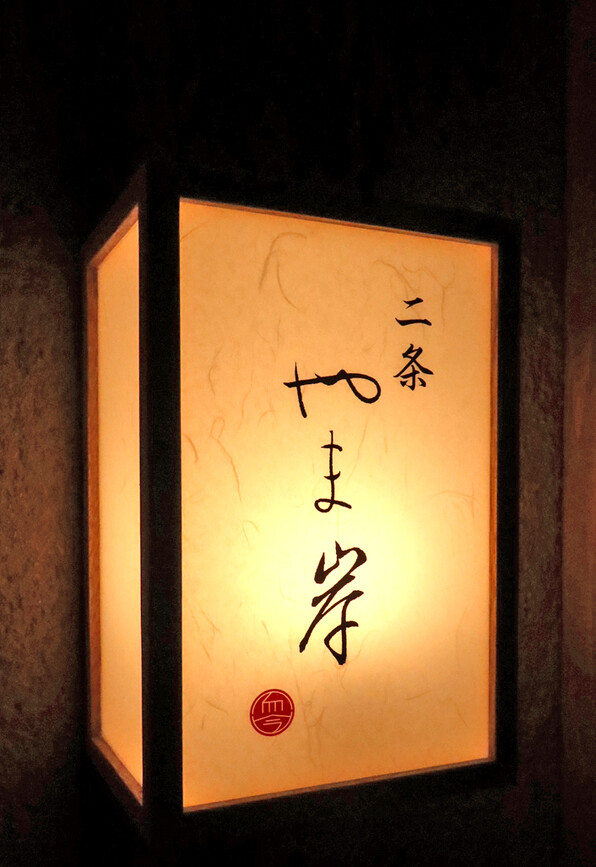 二条
やま岸